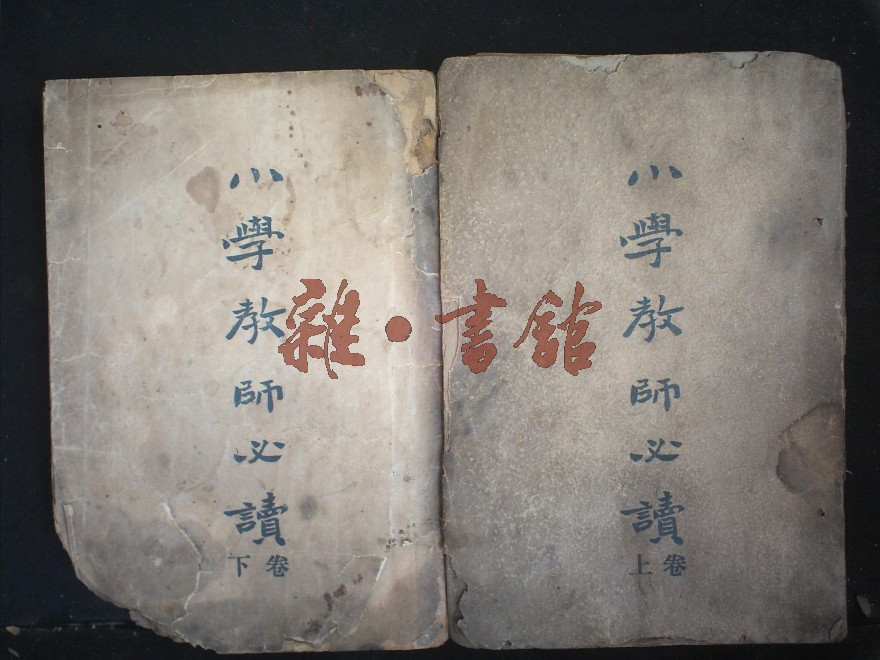 小學教師必讀
卷上
小學教師必讀
卷下
雜·書館